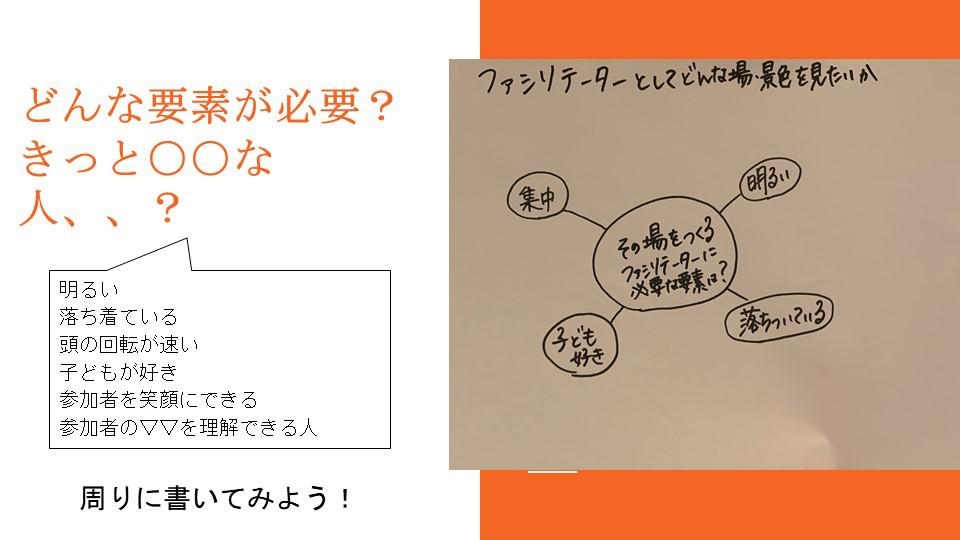 どんな要素が必要？
きっと〇〇な
人、、？
明るい
落ち着ている
頭の回転が速い
子どもが好き
参加者を笑顔にできる
参加者の▽▽を理解できる人
周りに書いてみよう！
ファシリテーターとしてどんな場・景色を見たいか
集中
明るい
その場をつくる
ファシリテーターに
必要な要素は？
子ども
好き
落ちついている